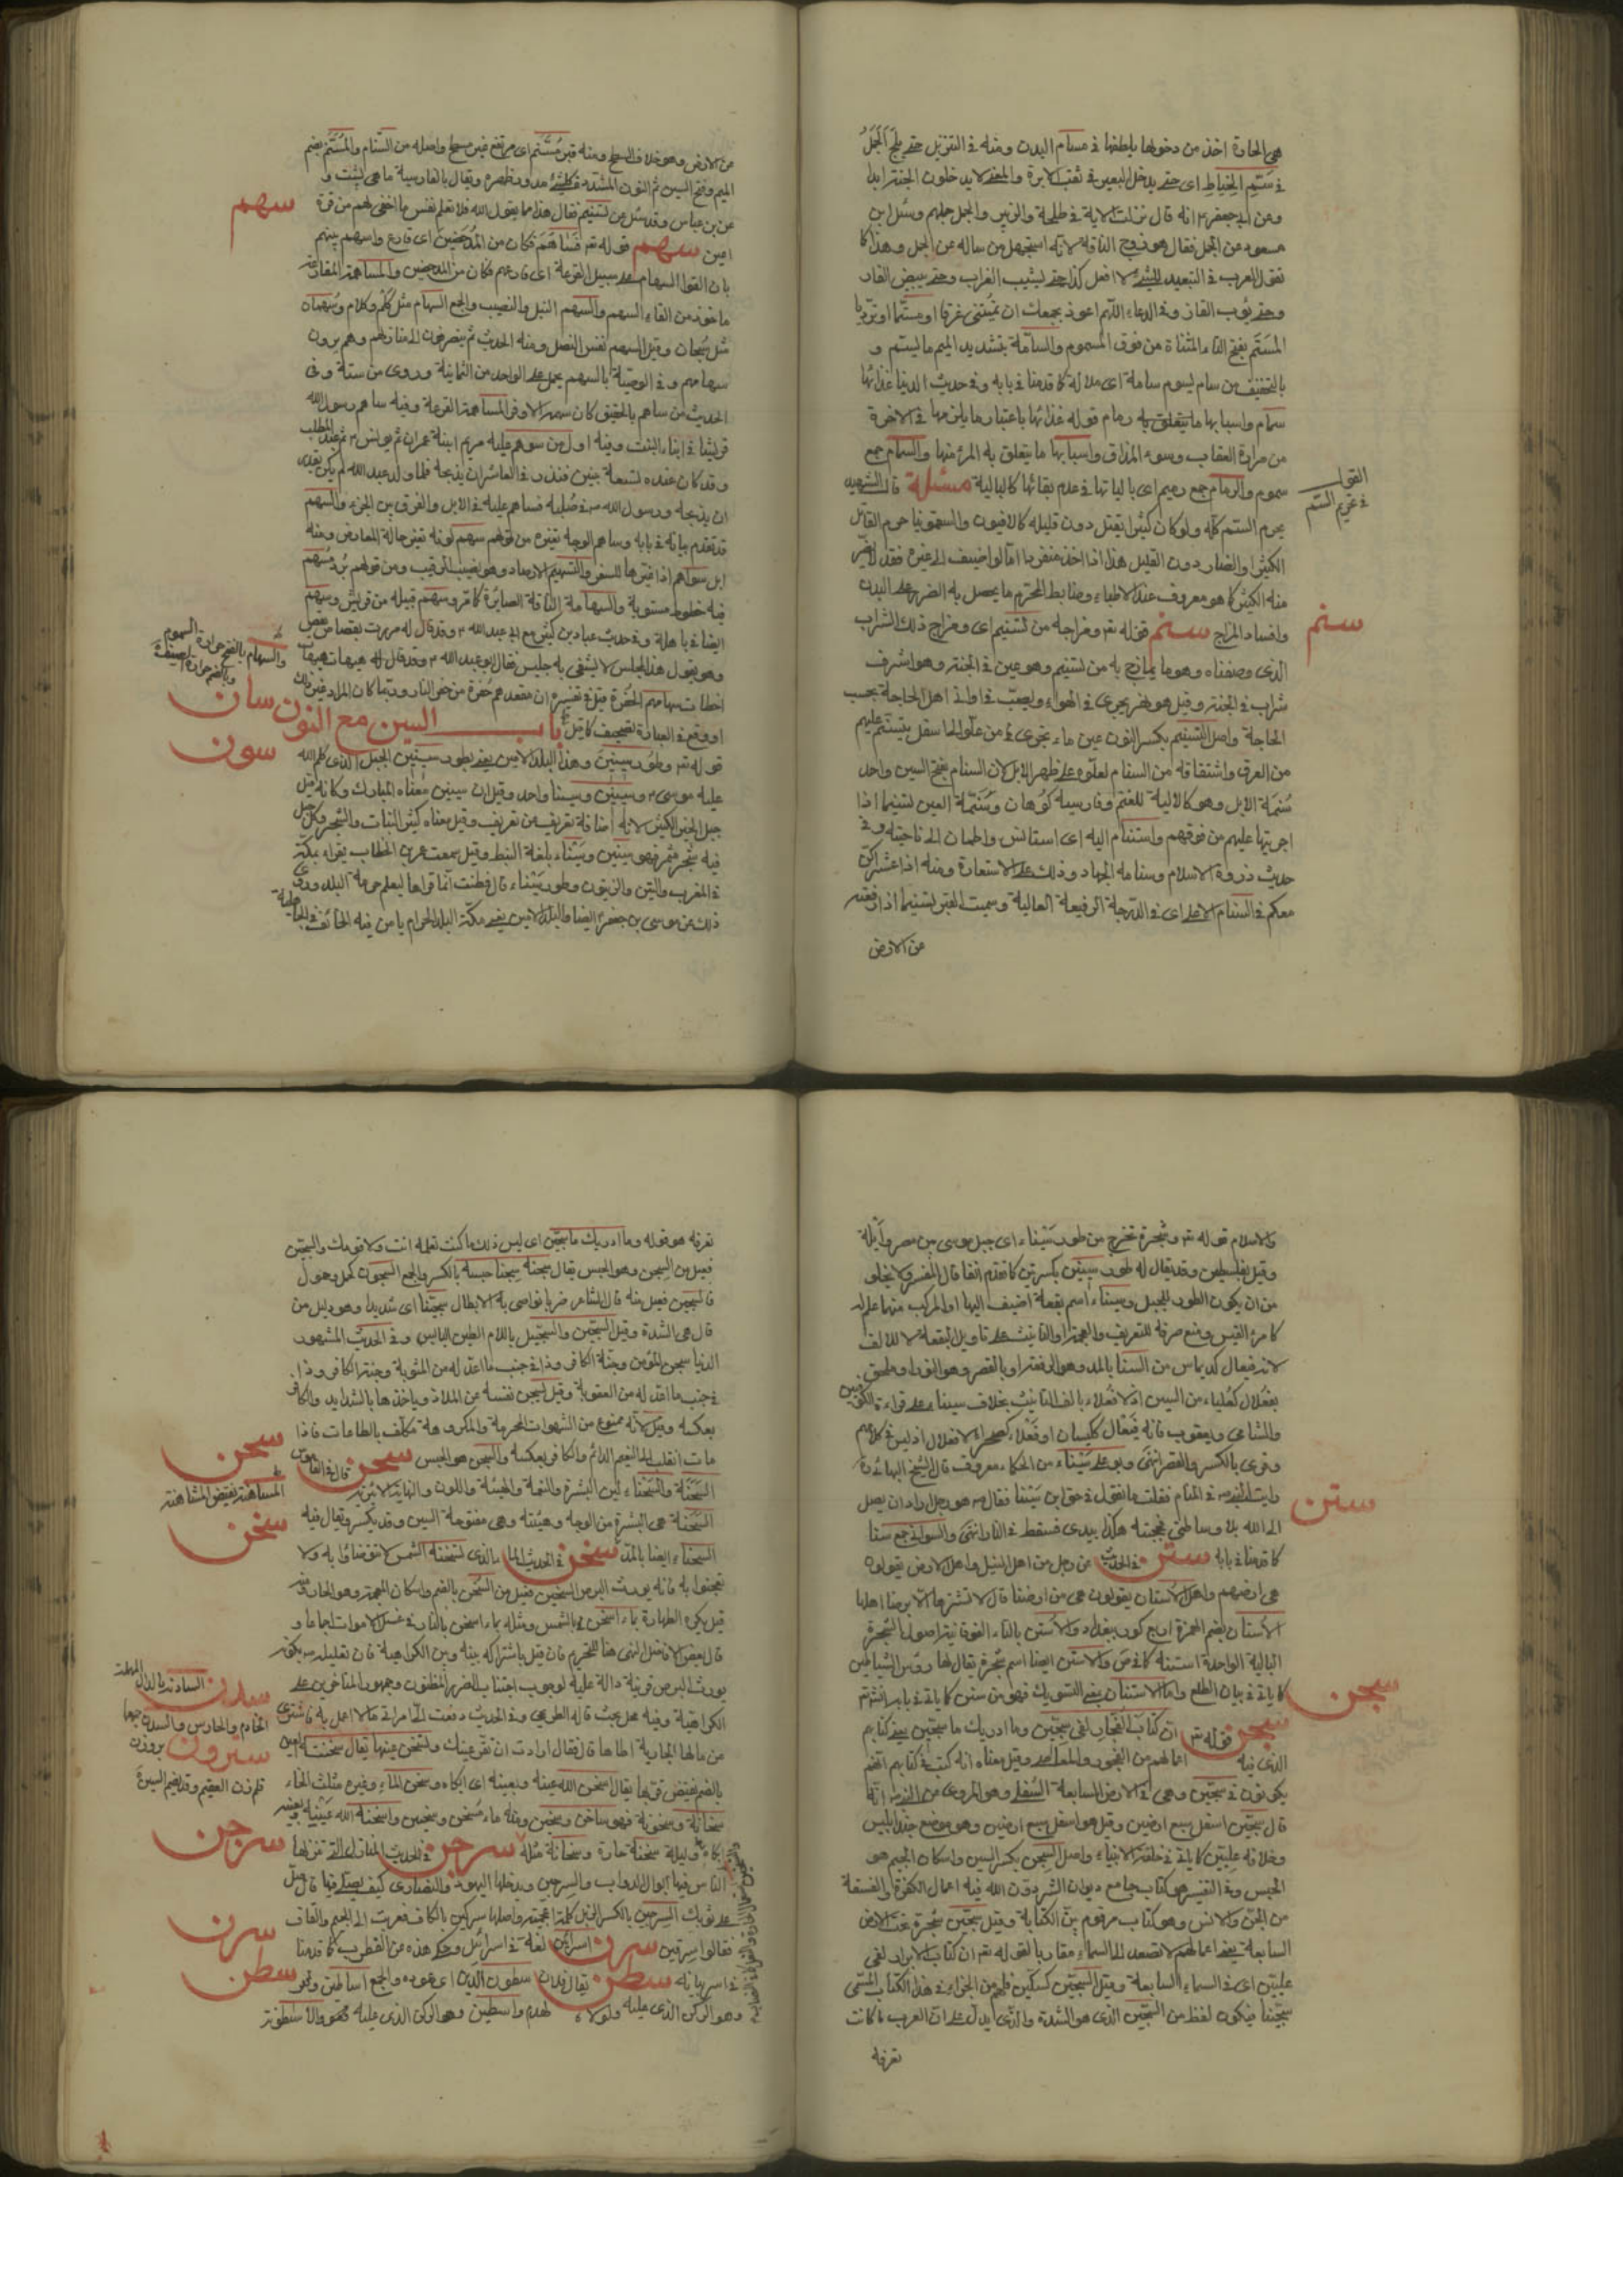 هى الحادة اخذ من دخولها بلطفها فى مسام البدن ومنه فى التنزيل حتى يلج الجمل
فى سم الخياط اى حتى يدخل البعير فى ثقب الابرة والمعنى لا يدخلون الجنة ابدا
وعن ابى جعفر انه قال نزلت الاية فى طلحة والزبير والجمل جملهم وسئل ابن
مسعود عن الجمل فقال هو زوج الناقة لانه استجهل من ساله عن الجمل وهذا كما
تقول العرب فى التبعيد للشئ لا افعل كذا حتى يشيب الغراب وحتى يبيض القار
وحتى يؤب القارظ وفى الدعاء اللهم اعوذ بك ان تميتنى غرقا او مستما او ترديا
المستم بفتح التاء المثناة من فوق المسموم والسامة بتشديد الميم ما يسم و
بالتخفيف من سام يسوم سامة اى ملالة كما قدمنا فى بابه وفى حديث الدنيا غذائها
سمام واسبابها ما يتعلق به رمام قوله غذائها باعتبار ما يلزمها فى الاخرة
من مرارة العقاب وسوء المذاق واسبابها ما يتعلق به المرء منها والسمام جمع
سموم والرمام جمع رميم اى بالياتها فى عدم بقائها كالبالية مسئلة قال الشهيد
القول
فى تحريم السم
يحرم السم كله ولو كان كثيرا يقتل دون قليله كالافيون والسقمونيا حرم القاتل
الكثير او الضار دون القليل هذا اذا اخذ منفردا اما لو اضيف الى غيره فقد لا يضر
منه الكثير كما هو معروف عند الاطباء وضابط المحرم ما يحصل به الضرر على البدن
وافساد المزاج سنم قوله تع ومزاجه من تسنيم اى ومزاج ذلك الشراب
سنم
الذى وصفناه وهو ما يمازج به من تسنيم وهو عين فى الجنة وهو اشرف
شراب فى الجنة وقيل هو نهر يجرى فى الهواء ويصب فى اوانى اهل الجنة بحسب
الحاجة واصل التسنيم بكسر النون عين ماء تجرى من علو الى اسفل يتسنم عليهم
من الغرف واشتقاقه من السنام لعلوه على ظهر الابل لان السنام بفتح السين واحد
سنمة الابل وهو كالالية للغنم وفارسية كوهان وسنمة العين تسنيما اذا
اجريتها عليهم من فوقهم واستنام اليه اى استانس واطمان الى ناحيته وفى
حديث ذروة الاسلام وسنامه الجهاد وذلك على الاستعارة ومنه اذا عشر اكن
معكم فى السنام الاعلى اى فى الدرجة الرفيعة العالية وسميت القبر تسنيما اذا رفعته
عن الارض
عن الارض وهو خلاف السطح ومنه قبر مسنم اى مرتفع غير مسطح واصله من السنام والمسنم بضم
الميم وفتح السين ثم النون المشددة كل شئ مدور ظهره ويقال بالفارسية ماهى پشت و
عن بن عباس وقد سئل عن تسنيم فقال هذا مما يقول الله فلا تعلم نفس ما اخفى لهم من قرة
سهم
اعين سهم قوله تع فساهم فكان من المدحضين اى قارع واسهم بينهم
بان القوا السهام على سبيل القرعة اى قارعهم فكان من المدحضين والمساهمة المقارعة
ماخوذ من القاء السهم والسهم النبل والنصيب والجمع السهام مثل كلم وكلام وسهمان
مثل سبحان وقيل السهم نفس النصل ومنه الحديث ثم ينصرفون الى منازلهم وهم يرون
سهامهم وفى الوصية بالسهم يحمل على الواحد من الثمانية وروى من ستة وفى
الحديث من ساهم بالحقيق كان سهمه الاوفى المساهمة القرعة وفيه ساهم رسول الله
قريشا فى بناء البيت وفيه اول من سوهم عليه مريم ابنة عمران ثم يونس ثم عبد المطلب
وقد كان عنده تسعة بنين فنذر فى العاشر ان يذبحه فلما ولد عبد الله لم يكن يقدر
ان يذبحه ورسول الله ص فى صلبه فساهم عليه فى الابل والفرق بين الجزء والسهم
قد تقدم بيانه فى بابه وساهم الوجه تغيره من قولهم سهم لونه تغير حاله لعارض ومنه
ابل سواهم اذا غيرها السفر والتسهيم الارصاد وهو نصب الرقيب ومن قولهم برد مسهم
فيه خطوط مستوية والسهامة الناقة الضامرة كما مر وسهم قبيلة من قريش وسهم
والسهام بالفتح حرارة السموم
ايضا فى باهلة وفى حديث عباد بن كثير مع ابى عبد الله وقد قال له مررت بقصاص يقص
وهو يقول هذا المجلس لا يشقى به جليس فقال ابو عبد الله وقد قال له هيهات هيهات
اخطات سهامهم الحفرة قيل فى تفسيره ان مقعدهم حفرة من حفر النار وربما كان المراد غير ذلك
او وقع فى العبارة تصحيف كما قيل باب السين مع النون سان
سون
قوله تع وطور سينين وهذا البلد الامين يعنى بطور سينين الجبل الذى كلم الله
عليه موسى وسينين وسينا واحد وقيل ان سينين معناه المبارك وكانه قيل
جبل الخير الكثير لانه اضافة تعريف من تعريف وقيل معناه كثير النبات والشجر وكل جبل
فيه شجر مثمر فهو سينين وسيناء بلغة النبط وقيل سمعت عمر بن الخطاب يقراء بمكة
فى المغرب والتين والزيتون وطور سيناء قال فظننت انما قراها ليعلم حرمة البلد وروى
ذلك عن موسى بن جعفر ايضا والبلد الامين يعنى مكة البلد الحرام يامن فيه الخائف فى الجاهلية
والاسلام قوله تع وشجرة تخرج من طور سيناء اى جبل موسى بين مصر وايلة
وقيل بفلسطين وقد يقال له طور سينين بكسرتين كما تقدم انفا قال المفسر ولا يخلو
من ان يكون الطور للجبل وسيناء اسم بقعة اضيف اليها او المركب منها علم له
كامرئ القيس ومنع صرفه للتعريف والعجمة او التانيث على تاويل البقعة لا للالف
لانه فيعال كديماس من السنا بالمد وهو الرفعة او بالقصر وهو النور او ملحق
بفعلال كعلباء من السين اذ لا فعلاء بالف التانيث بخلاف سيناء على قراءة الكوفيين
والشامى ويعقوب فانه فيعال ككيسان او فعلاء كصحراء لا فعلال اذ ليس فى كلامهم
وقرى بالكسر والقصر انتهى وبو على سيناء من الحكماء معروف قال الشيخ البهائى ره
رايت النبى ص فى المنام فقلت ما تقول فى حق ابن سينا فقال ص هو رجل اراد ان يصل
ستن
الى الله بلا وساطتى فحجبته هكذا بيدى فسقط فى النار انتهى والسوانى جمع سنا
كما قدمنا فى بابه ستن فى الحديث عن رجل من اهل النيل واهل الارض يقولون
هى ارضهم واهل الاستان يقولون هى من ارضنا قال لا تشترها الا برضا اهلها
الاستان بضم الهمزة اربع كور ببغداد والاستن بالتاء الفوقانية اصول الشجرة
البالية الواحدة استنة كما فى ص والاستن ايضا اسم شجرة يقال لها رؤس الشياطين
كما ياتى فى بيان الطلع واما الاستنان بمعنى التسويك فهو من سنن كما ياتى فى بابه انش تع
سجن
سجن قوله تع ان كتاب الفجار لفى سجين وما ادريك ما سجين يعنى كتابهم
الذى فيه اعمالهم من الفجور والمعاصى وقيل معناه انه كتب فى كتابهم انهم
يكونون فى سجين وهى فى الارض السابعة السفلى وهو المروى عن النبى انه
قال سجين اسفل سبع ارضين وقيل هو اسفل سبع ارضين وهو موضع جند ابليس
وخلافه عليين كما ياتى فى خلقة الانبياء واصل السجن بكسر السين واسكان الجيم هو
الحبس وفى التفسير هو كتاب جامع ديوان الشر دون الله فيه اعمال الكفرة والفسقة
من الجن والانس وهو كتاب مرقوم بين الكتابة وقيل سجين شجرة تحت الارض
السابعة يعنى اعمالهم لا تصعد الى السماء مقاربا لقوله تع ان كتاب الابرار لفى
عليين اى فى السماء السابعة وقيل السجين كسكين
سجينا فيكون لفظ من السجين الذى هو الشدة والذى يدل على ان العرب ما كانت
تعرفه
تعرفه هو قوله وما ادريك ما سجين اى ليس ذلك ما كنت تعلمه انت ولا قومك والسجين
فعيل من السجن وهو الحبس يقال سجنه سجنا حبسه بالكسر والجمع السجون كحمل وحمول
فالسجين فعيل منه قال الشاعر ضربا تواصى به الابطال سجينا اى شديدا وهو دليل من
قال هى الشدة وقيل السجين والسجيل باللام الطين اليابس وفى الحديث المشهور
الدنيا سجن المؤمن وجنة الكافر وذا فى جنب ما اعد له من المثوبة وجنة الكافر وذا
فى جنب ما اعد له من العقوبة وقيل يسجن نفسه عن الملاذ وياخذها بالشدايد والكافر
بعكسه وقيل لانه ممنوع من الشهوات المحرمة والمكروهة مكلف بالطاعات فاذا
سحن
مات انقلب الى النعيم الدائم والكافر بعكسه والسجن هو الحبس سحن قال فى القاموس
المساهنة نقيض المشاهنة
السحنة والسحناء لين البشرة والنعمة والهيئة واللون والنهاية الاثيرية
سخن
السحنة هى البشرة من الوجه وهيئته وهى مفتوحة السين وقد يكسر ويقال فيه
السحناء ايضا بالمد سخن فى الحديث الماء الذى تسخنه الشمس لا تتوضاؤا به ولا
تعجنوا به فانه يورث البرص السخين فعيل من السخن بالضم واسكان المعجمة وهو الحار منه
قيل يكره الطهارة بماء اسخن بالشمس ومثله بماء اسخن بالنار فى غسل الاموات اجماعا و
قال بعض الافاضل النهى هنا للتحريم فان قيل باشتراكه بينه وبين الكراهية فان تعليله ص بكونه
يورث البرص قرينة دالة عليه لوجوب اجتناب الضرر المظنون وجمهور المتاخرين على
السادن بالدال المهملة
سدن
الكراهية وفيه محل بحث قاله الطريحى وفى الحديث دفعت الى امراتى مالا اعمل به فاشترى
الخادم والحارس والسدن جمعها
من مالها الجارية اطاها قال فقال ارادت ان تقر عينك وتسخن عينها يقال سخنت العين
سترون بروزن
بالضم نقيض قرتها يقال اسخن الله عينه وبعينه اى ابكاه وسخن الماء وغيره مثلث الخاء
قلزون العقيم وقد يضم السين
سخانة وسخونة فهو ساخن وسخين ومنه ماء مسخن وسخين واسخنه الله عينيه وبعينيه
سرجن
ابكاه وليلة سخنة حارة وسخانة مثله سرجن فى الحديث المنازل التى تنزلها
الناس فيها ابوال الدواب والسرجين ويدخلها اليهود والنصارى كيف يصلى فيها قال صل
على ثوبك السرجين بالكسر الزبل كلمة اعجمية واصلها سركين بالكاف فعربت الى الجيم والقاف
سرن
فقالوا سرقين سرن اسرائين لغة فى اسرائيل وحكى هذه عن القطرب كما قدمنا
سطن
فى اسر بيانه سطن يقال فلان سطون الدين اى عموده والجمع اساطين وهو
وهو الركن الذى عليه ولولاه لهدم واسطين وهو الركن الذى عليه فهو والاسطونة